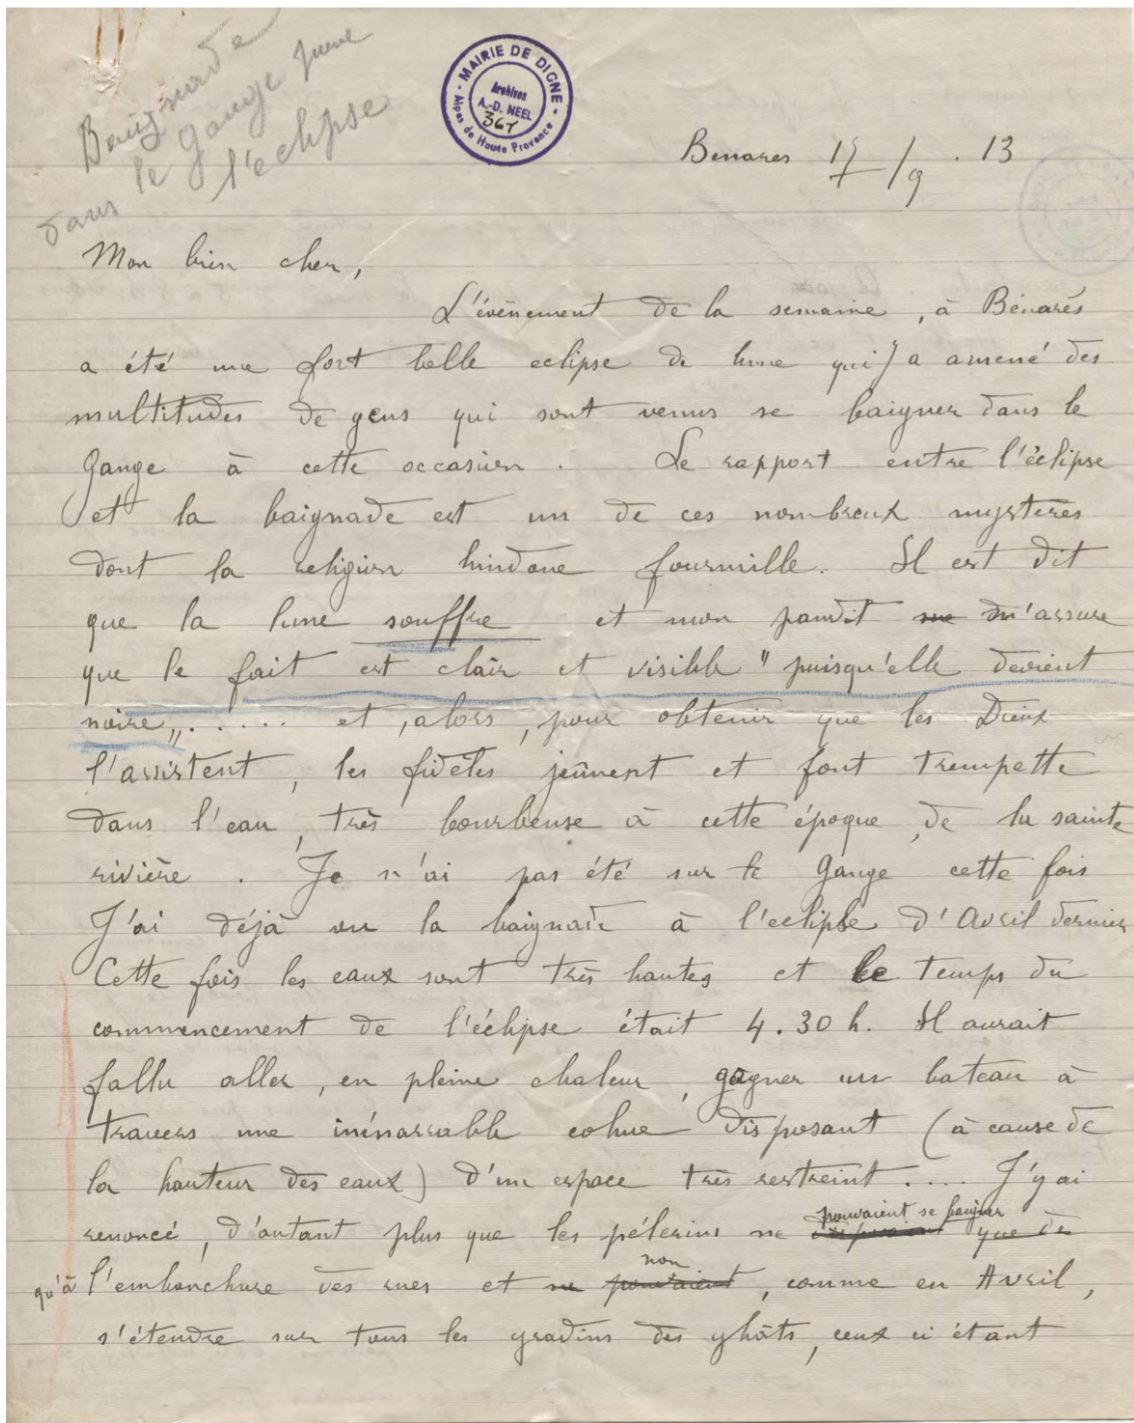 Baignade
dans le Gange pour
l'eclipse
MAIRIE DE DIGNE
Archives
A.-D. NEEL
367
Alpes de Haute Provence
Benares 15/9 . 13
Mon bien cher,
L'évènement de la semaine, à Bénarès
a été une fort belle eclipse de lune qui a amené des
multitudes de gens qui sont venus se baigner dans le
Gange à cette occasion. Le rapport entre l'éclipse
et la baignade est un de ces nombreux mystères
dont la religion hindoue fourmille. Il est dit
que la lune souffre et mon pandit me m'assure
que le fait est clair et visible "puisqu'elle devient
noire„..... et, alors, pour obtenir que les Dieux
l'assistent, les fidèles jeûnent et font trempette
dans l'eau, très bourbeuse à cette époque, de la sainte
rivière. Je n'ai pas été sur le Gange cette fois
J'ai déjà vu la baignade à l'eclipse d'Avril dernier
Cette fois les eaux sont très hautes et le temps du
commencement de l'éclipse était 4.30 h. Il aurait
fallu aller, en pleine chaleur, gagner un bateau à
travers une inénarrable cohue disposant (à cause de
la hauteur des eaux) d'un espace très restreint.... J'y ai
renoncé, d'autant plus que les pélerins ne disposant pouvaient se baigner que de
qu'à l'embouchure des rues et ne pouvaient non, comme en Avril,
s'étendre sur tous les gradins des ghâts, ceux ci étant